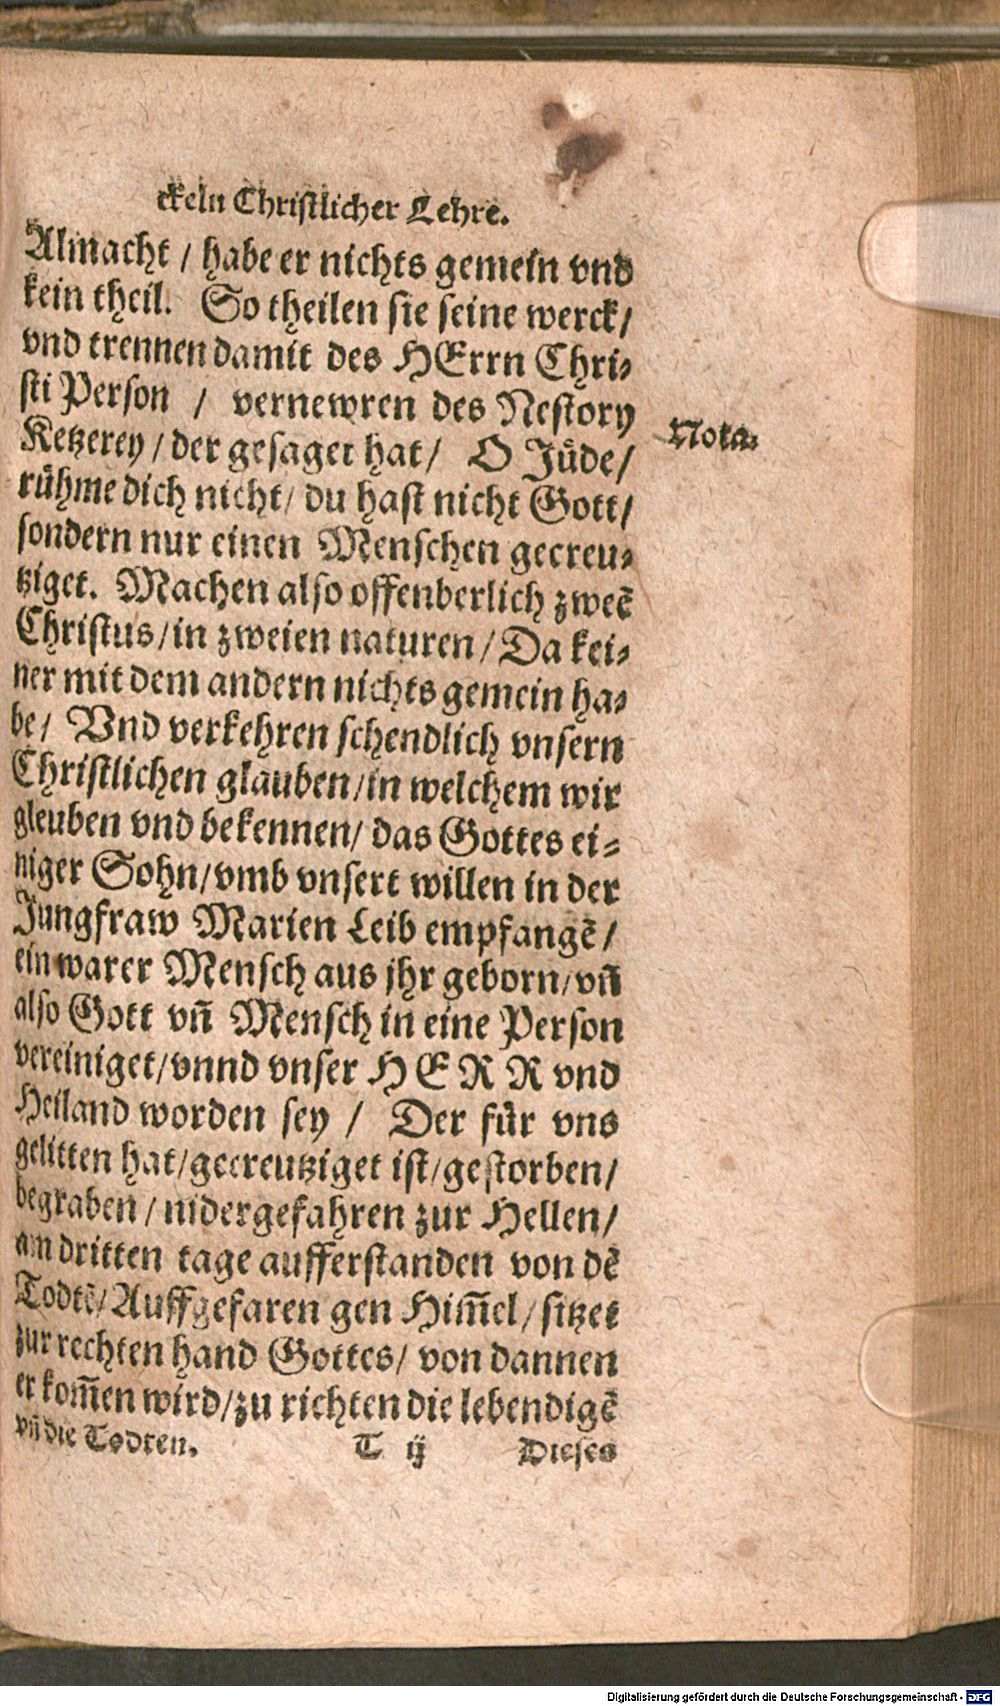 ckeln Christlicher Lehre.
Almacht / habe er nichts gemein vnd
kein theil. So theilen sie seine werck/
vnd trennen damit des HErrn Chri-
sti Person / vernewren des Nestory
Nota.
Ketzerey / der gesaget hat / O Jüde/
rühme dich nicht / du hast nicht Gott/
sondern nur einen Menschen gecreu-
tziget. Machen also offenberlich zweẽ
Christus / in zweien naturen / Da kei-
ner mit dem andern nichts gemein ha-
be / Vnd verkehren schendlich vnsern
Christlichen glauben / in welchem wir
gleuben vnd bekennen / das Gottes ei-
niger Sohn / vmb vnsert willen in der
Jungfraw Marien Leib empfangẽ /
ein warer Mensch aus jhr geborn / vñ
also Gott vñ Mensch in eine Person
vereiniget / vnnd vnser HERR vnd
Heiland worden sey / Der für vns
gelitten hat / gecreutziget ist / gestorben/
begraben / nidergefahren zur Hellen/
am dritten tage aufferstanden von dẽ
Todtẽ / Auffgefaren gen Him̃el / sitzet
zur rechten hand Gottes / von dannen
er kom̃en wird / zu richten die lebendigẽ
vñ die Todten. T ij Dieses
Digitalisierung gefördert durch die Deutsche Forschungsgemeinschaft - DFG